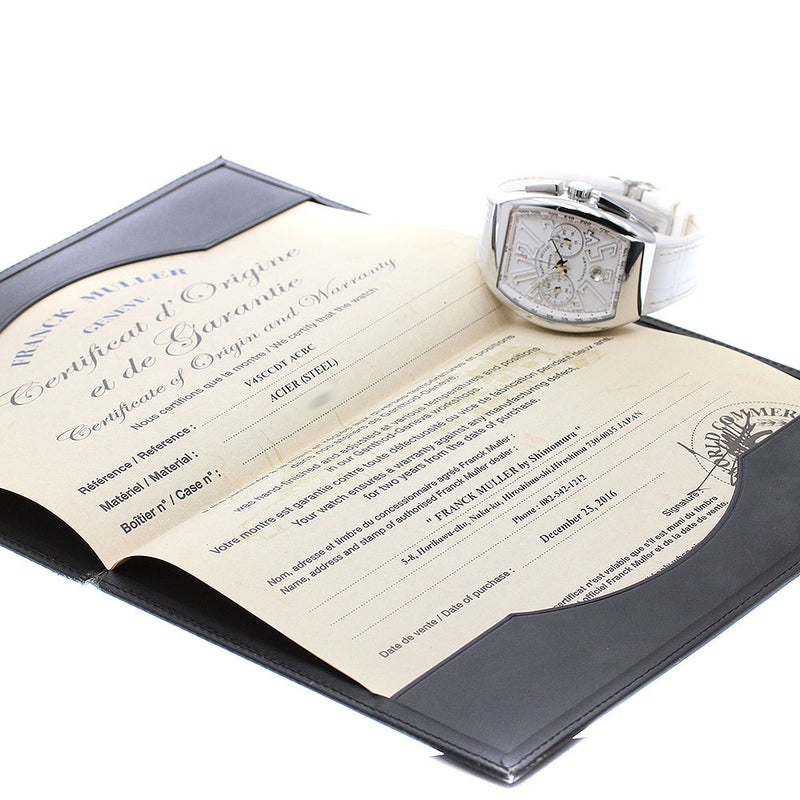 FRANCK MULLER
GENEVE
Certificat d'Origine
et de Garantie
Certificate of Origin and Warranty
Nous certifions que la montre / We certify that the watch
Référence / Reference : V45CCDT ACBC
Matériel / Material : ACIER (STEEL)
Boîtier n° / Case n° :
températures et positions
dans nos ateliers de Genthod-Geneva
was hand-finished and adjusted at various temperatures and positions
in our Genthod-Geneva workshops.
Votre montre est garantie contre toute défectuosité ou vice de fabrication pendant deux ans.
Your watch ensures a warranty against any manufacturing defect,
for two years from the date of purchase.
Nom, adresse et timbre du concessionnaire agréé Franck Muller :
Name, address and stamp of authorised Franck Muller dealer :
" FRANCK MULLER by Shimomura "
5-8, Horikawa-cho, Naka-ku, Hiroshima-shi,Hiroshima 730-0035 JAPAN
Phone : 082-542-1212
Date de vente / Date of purchase : December 23, 2016
Signature
WORLD COMMER
certificat n'est valable que s'il est muni du timbre
officiel Franck Muller et de la date de vente.